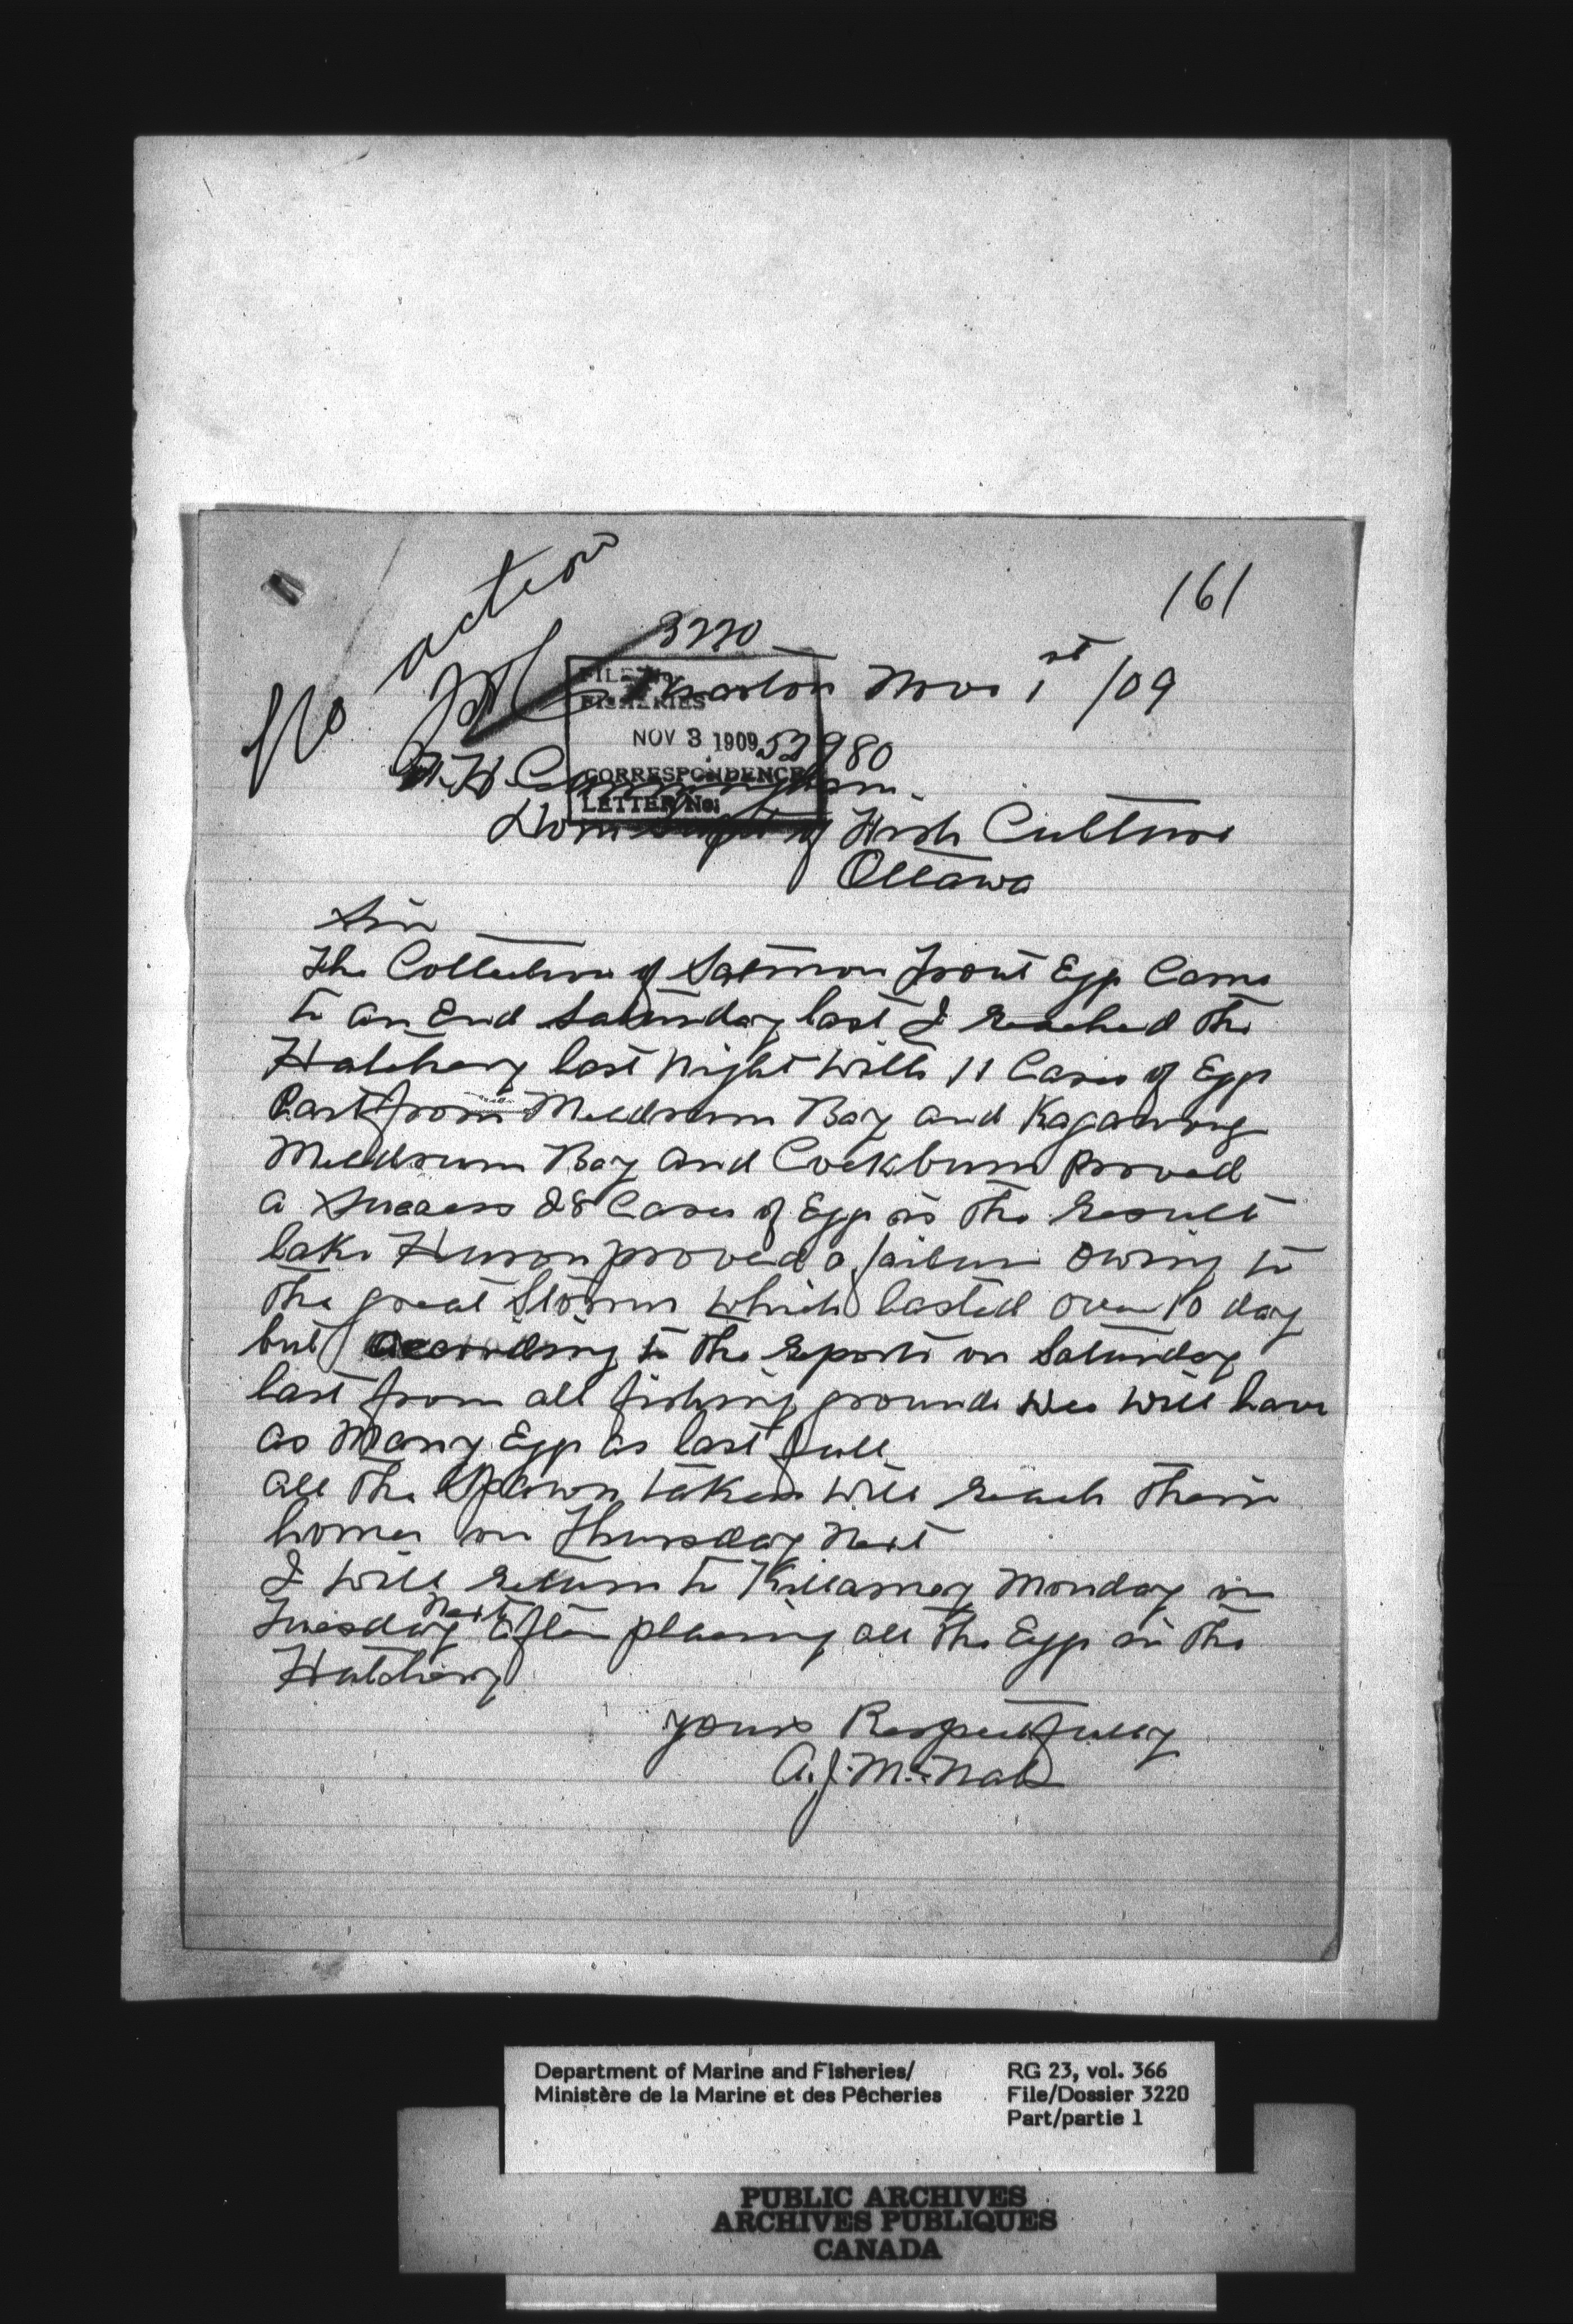 161
No action
3220
FILE No.
FISHERIES
NOV 3 1909 52980
CORRESPONDENCE
LETTER No:
Wiarton Nov 1st /09
F.H. Cunningham
Dom Supt of Fish Culture
Ottawa
Sir
The Collection of Salmon Trout Eggs Came
to an End Saturday last I reached the
Hatchery last night with 11 Cases of Eggs
Part from Meldrum Bay and Kagawong
Meldrum Bay and Cockburn proved
a success 28 Cases of Eggs is the result
lake Huron proved a failure owing to
the great Storm which lasted over 10 day
but according to the reports on Saturday
last from all fishing grounds wee will have
as Many Eggs as last full
all the Spawn taken will reach their
homes on Thursday Next
I will return to Killarney Monday or
Tuesday Next after placing all the Eggs in the
Hatchery
yours Respectfully
A.J. McNab
Department of Marine and Fisheries/
Ministère de la Marine et des Pêcheries
RG 23, vol. 366
File/Dossier 3220
Part/partie 1
PUBLIC ARCHIVES
ARCHIVES PUBLIQUES
CANADA